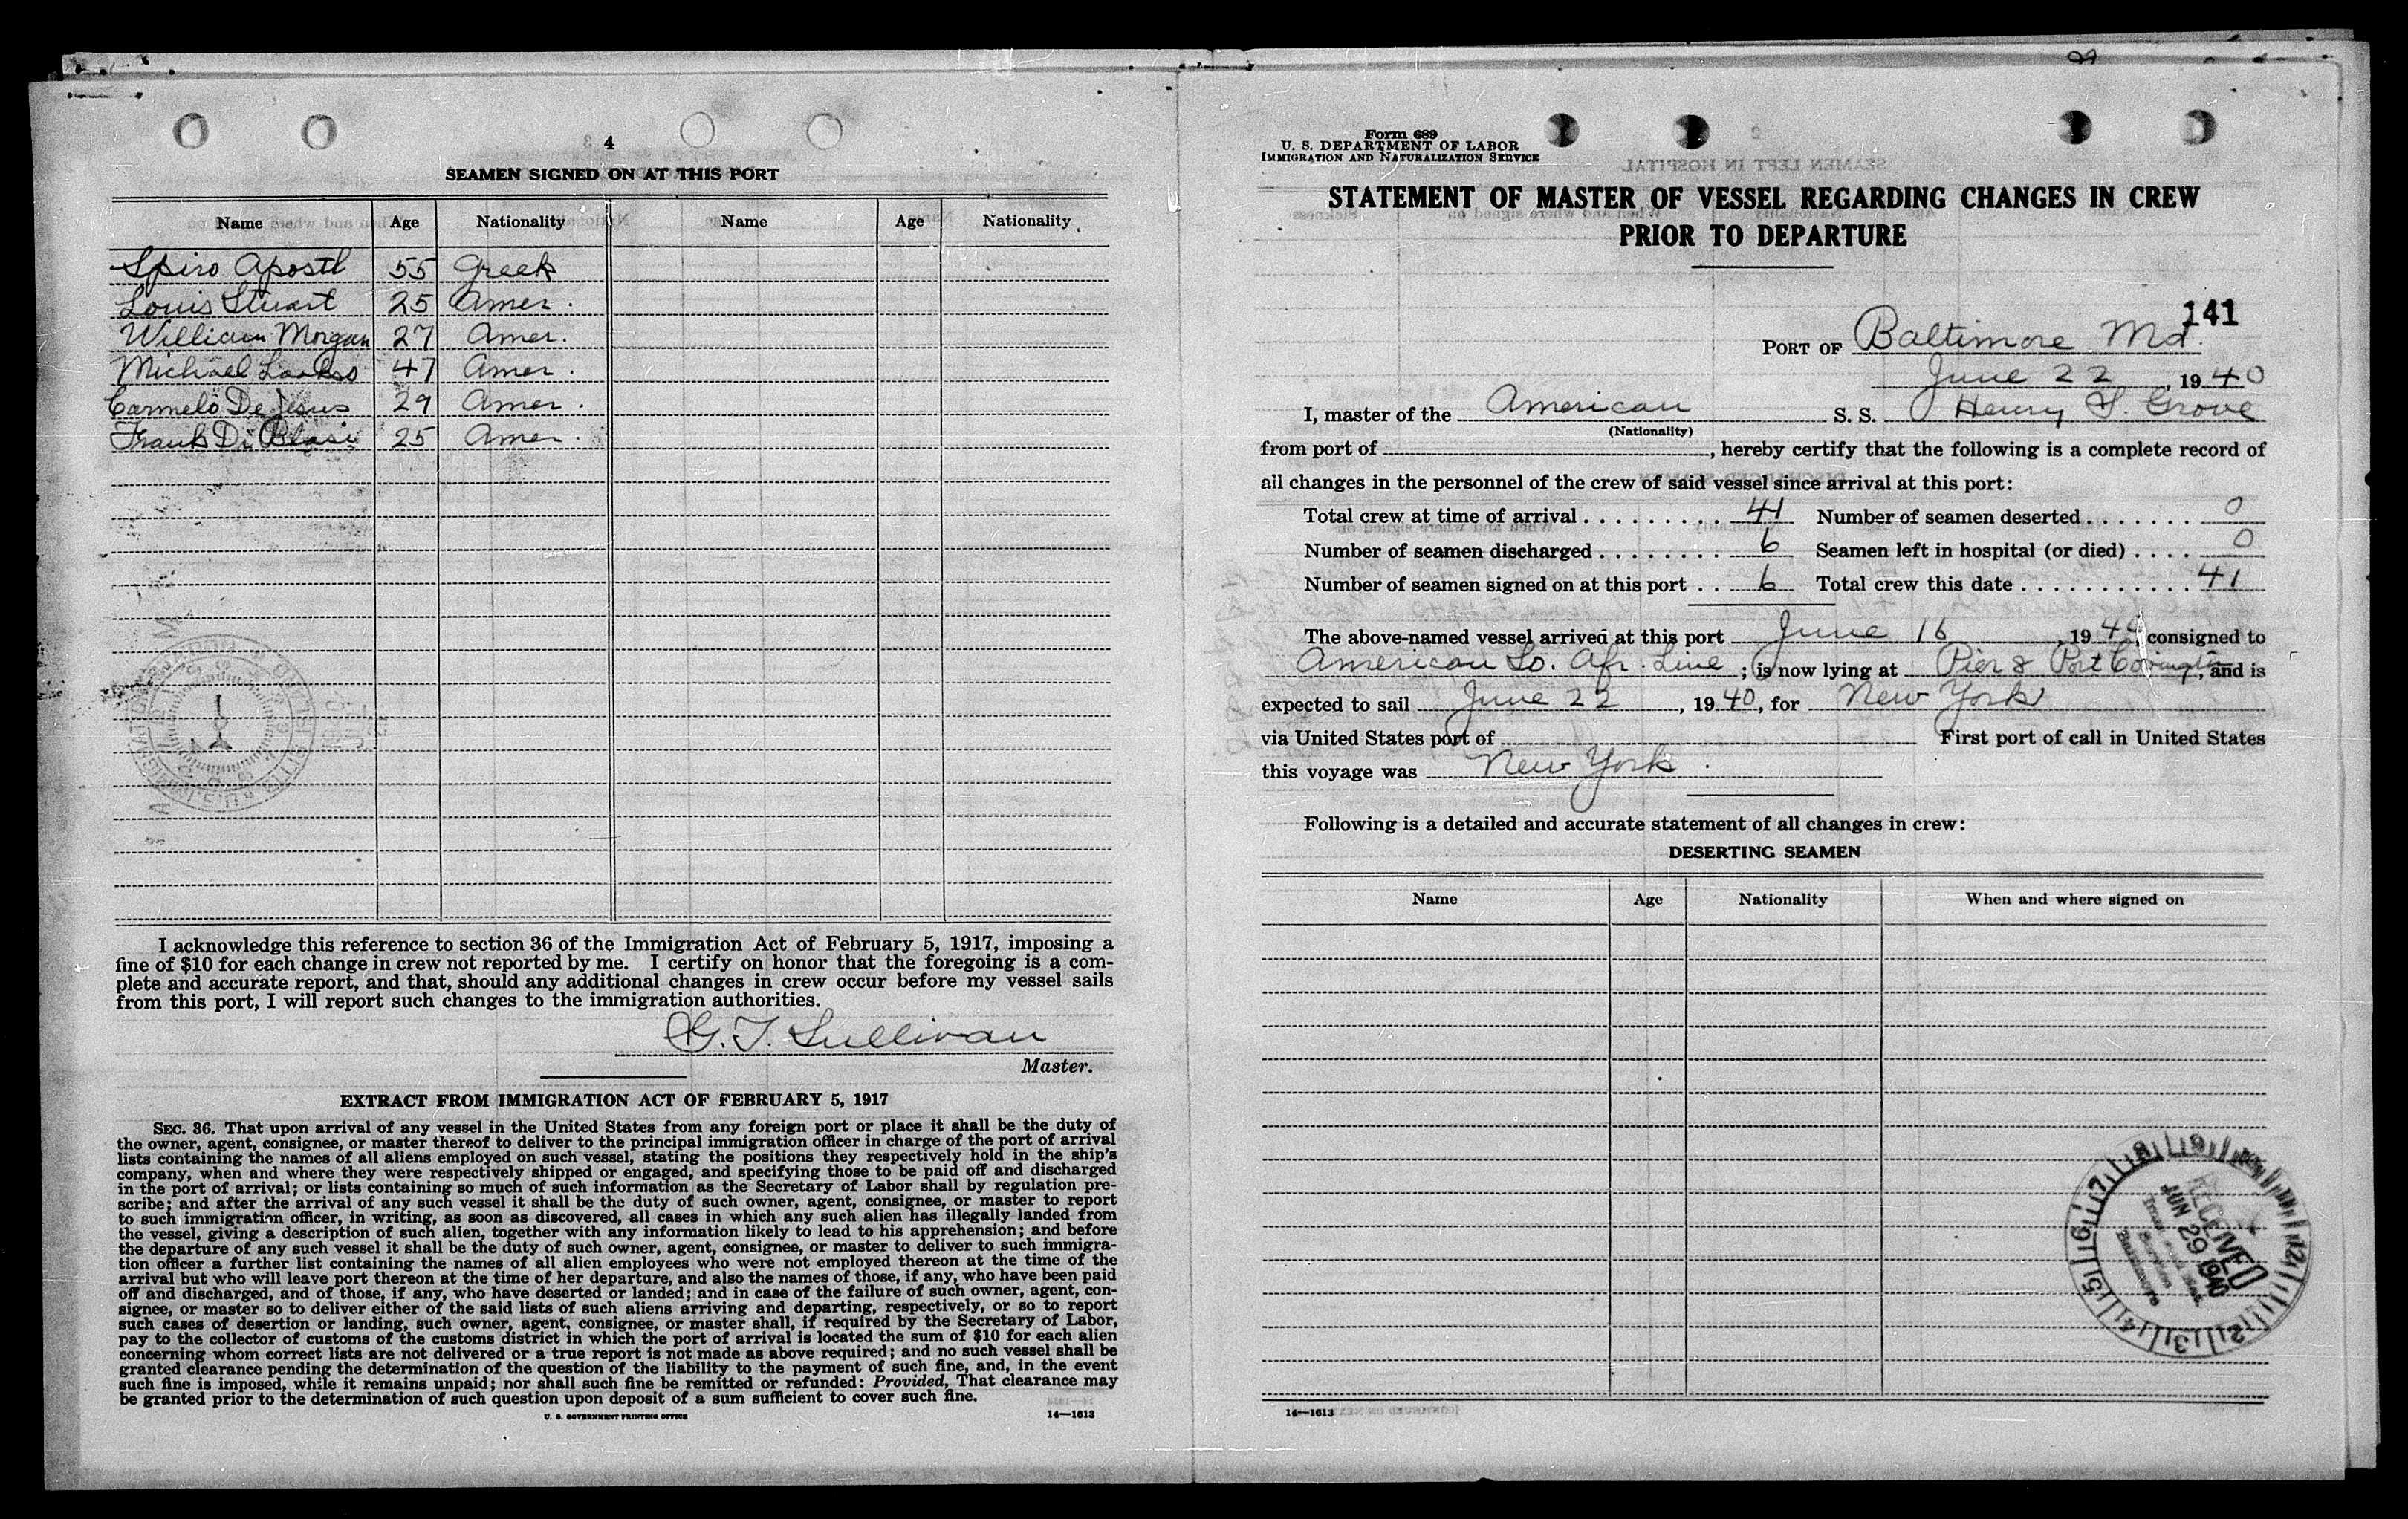 4
SEAMEN SIGNED ON AT THIS PORT
Name Age Nationality Name Age Nationality
Spiro Apostl 55 Greek
Louis Stuart 25 Amer.
William Morgan 27 Amer.
Michael 47 Amer.
Carmelo De Jesus 29 Amer.
Frank Di Blasi 25 Amer.
I acknowledge this reference to section 36 of the Immigration Act of February 5, 1917, imposing a
fine of $10 for each change in crew not reported by me. I certify on honor that the foregoing is a com-
plete and accurate report, and that, should any additional changes in crew occur before my vessel sails
from this port, I will report such changes to the immigration authorities.
G. T. Sullivan
Master.
EXTRACT FROM IMMIGRATION ACT OF FEBRUARY 5, 1917
SEC. 36. That upon arrival of any vessel in the United States from any foreign port or place it shall be the duty of
the owner, agent, consignee, or master thereof to deliver to the principal immigration officer in charge of the port of arrival
lists containing the names of all aliens employed on such vessel, stating the positions they respectively hold in the ship's
company, when and where they were respectively shipped or engaged, and specifying those to be paid off and discharged
in the port of arrival; or lists containing so much of such information as the Secretary of Labor shall by regulation pre-
scribe; and after the arrival of any such vessel it shall be the duty of such owner, agent, consignee, or master to report
to such immigration officer, in writing, as soon as discovered, all cases in which any such alien has illegally landed from
the vessel, giving a description of such alien, together with any information likely to lead to his apprehension; and before
the departure of any such vessel it shall be the duty of such owner, agent, consignee, or master to deliver to such immigra-
tion officer a further list containing the names of all alien employees who were not employed thereon at the time of the
arrival but who will leave port thereon at the time of her departure, and also the names of those, if any, who have been paid
off and discharged, and of those, if any, who have deserted or landed; and in case of the failure of such owner, agent, con-
signee, or master so to deliver either of the said lists of such aliens arriving and departing, respectively, or so to report
such cases of desertion or landing, such owner, agent, consignee, or master shall, if required by the Secretary of Labor,
pay to the collector of customs of the customs district in which the port of arrival is located the sum of $10 for each alien
concerning whom correct lists are not delivered or a true report is not made as above required; and no such vessel shall be
granted clearance pending the determination of the question of the liability to the payment of such fine, and, in the event
such fine is imposed, while it remains unpaid; nor shall such fine be remitted or refunded: Provided, That clearance may
be granted prior to the determination of such question upon deposit of a sum sufficient to cover such fine.
U. S. GOVERNMENT PRINTING OFFICE 14—1613
Form 689
U. S. DEPARTMENT OF LABOR
IMMIGRATION AND NATURALIZATION SERVICE
STATEMENT OF MASTER OF VESSEL REGARDING CHANGES IN CREW
PRIOR TO DEPARTURE
141
PORT OF Baltimore Md.
June 22, 1940
I, master of the American S. S. Henry S. Grove
(Nationality)
from port of , hereby certify that the following is a complete record of
all changes in the personnel of the crew of said vessel since arrival at this port:
Total crew at time of arrival 41 Number of seamen deserted 0
Number of seamen discharged 6 Seamen left in hospital (or died) 0
Number of seamen signed on at this port 6 Total crew this date 41
The above-named vessel arrived at this port June 16, 1940, consigned to
American So. Afr. Line; is now lying at Pier 8 Port Covington, and is
expected to sail June 22, 1940, for New York
via United States port of First port of call in United States
this voyage was New York.
Following is a detailed and accurate statement of all changes in crew:
DESERTING SEAMEN
Name Age Nationality When and where signed on
RECEIVED
JUN 29 1940
14—1613